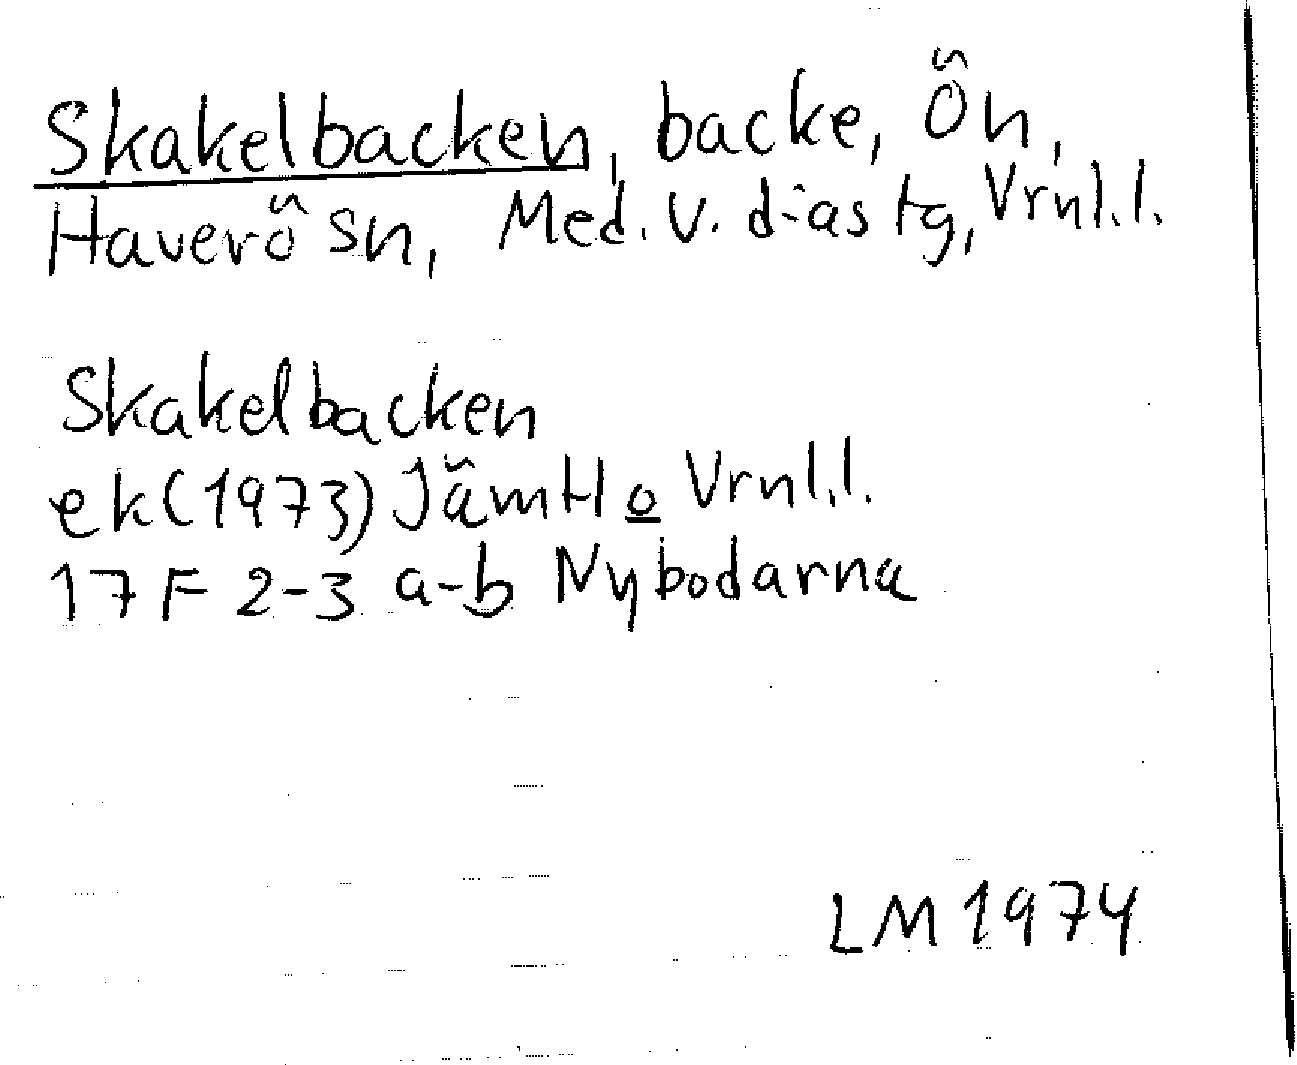 Skakelbacken, backe, Ön,
Haverö sn, Med. v. d-as tg, Vrnl.l.
Skakelbacken
ek(1973) JämH o Vrnl.l.
17 F 2-3 a-b Nybodarna
LM 1974